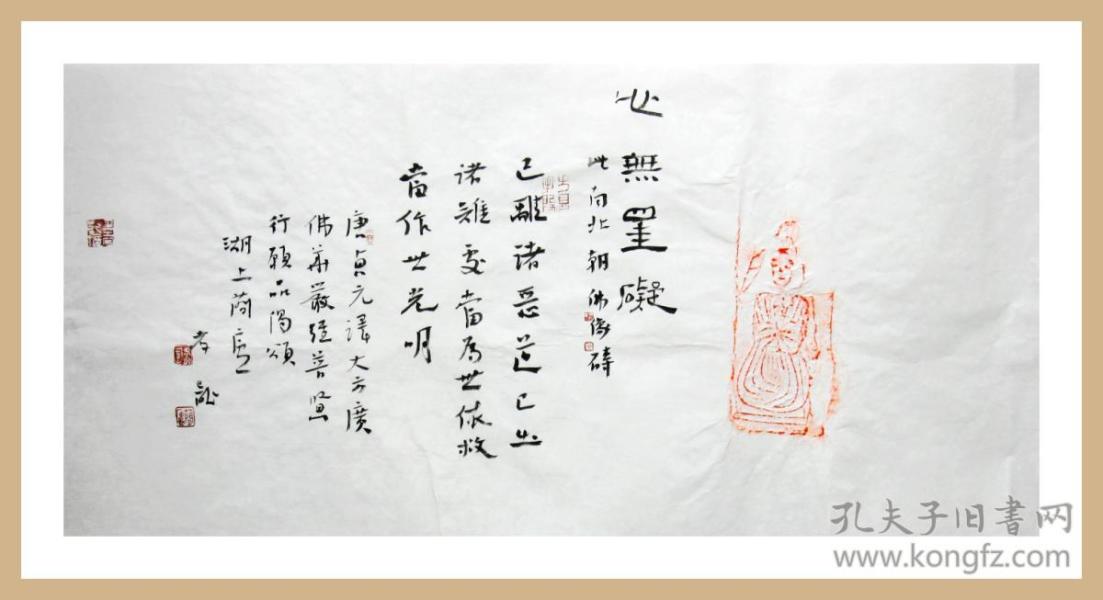 心無罣礙
此南北朝佛像磚
已離諸惡道已出
诸難處當為世依救
當作世光明
唐貞元譯大方廣
佛華嚴經普賢
行願品偈頌
湖上
孔夫子旧書网
www.kongfz.com